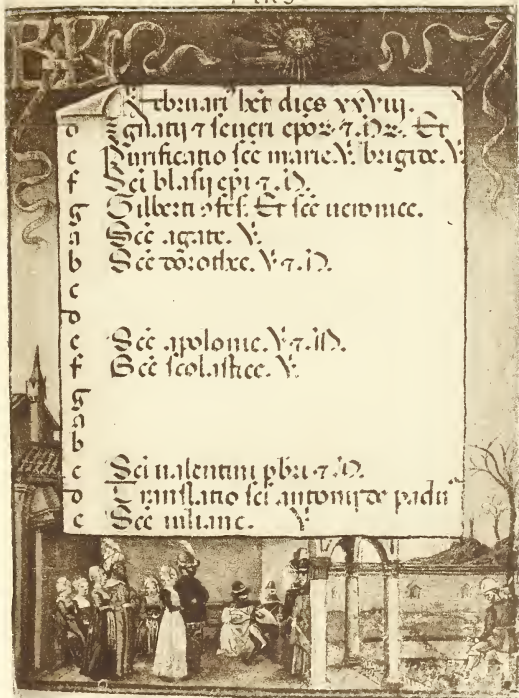 Februari het dies xxviii.
d Ignatij ⁊ seueri epoꝝ. ⁊. M. Et
e Purificatio scē marie. V. brigide. V.
f Sci blasij epi ⁊. M.
g Gilberti ɔfes. Et scē ueronice.
a Scē agate. V.
b Scē dorothee. V ⁊. M.
c
d
e Scē apolonie. V ⁊. M.
f Scē scolastice. V.
g
a
b
c Sci ualentini pbri ⁊. M.
d Translatio sci antonij de padu
e Scē iuliane. V